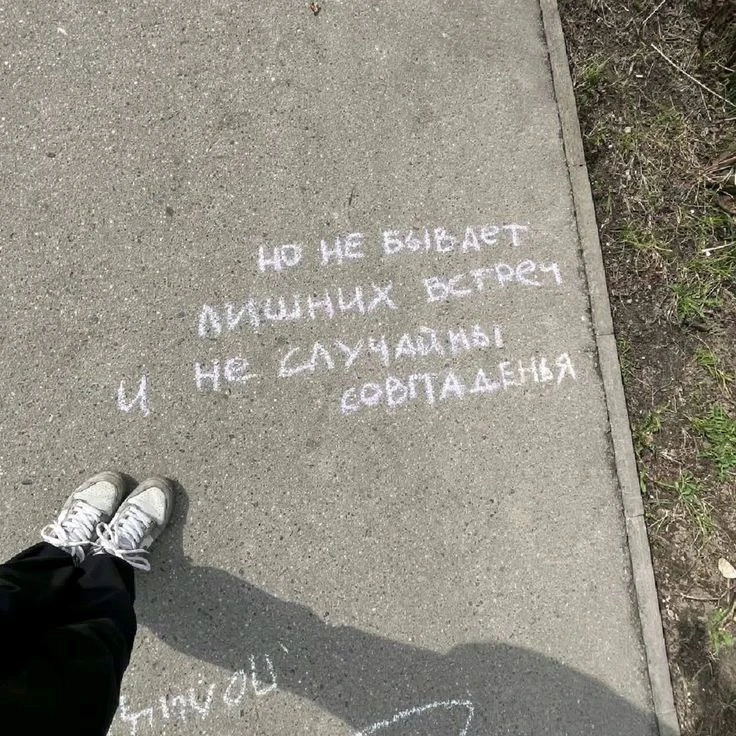 но не бывает
лишних встреч
и не случайны
совпаденья